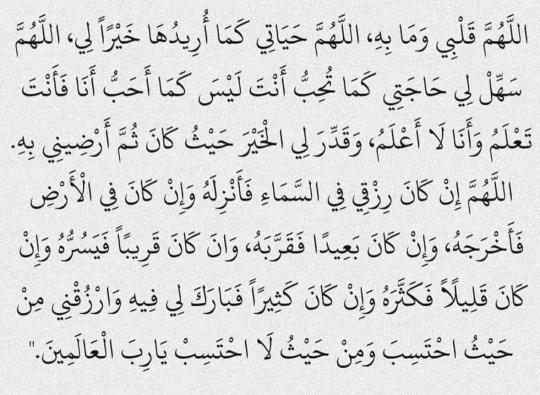 اللَّهُمَّ قَلْبِي وَمَا بِهِ، اللَّهُمَّ حَيَاتِي كَمَا أُرِيدُهَا خَيْرًاً لِي، اللَّهُمَّ
سَهِّلْ لِي حَاجَتِي كَمَا تُحِبُّ أَنْتَ لَيْسَ كَمَا أَحَبُّ أَنَا فَأَنْتَ
تَعْلَمُ وَأَنَا لَا أَعْلَمُ، وَقَدِّرَ لِي الْخَيْرَ حَيْثُ كَانَ ثُمَّ أَرْضِينِي بِهِ.
اللَّهُمَّ إِنْ كَانَ رِزْقِي فِي السَّمَاءِ فَأَنْزِلَهُ وَإِنْ كَانَ فِي الْأَرْضِ
فَأَخْرَجَهُ، وَإِنْ كَانَ بَعِيدًا فَقَرَّبَهُ، وَانَ كَانَ قَرِيبًاً فَيَسُرُّهُ وَإِنْ
كَانَ قَلِيلًاً فَكَثَّرَهُ وَإِنْ كَانَ كَثِيرًاً فَبَارَكَ لِي فِيهِ وَارْزُقْنِي مِنْ
حَيْثُ احْتَسِبَ وَمِنْ حَيْثُ لَا احْتَسِبْ يَارِبَ الْعَالَمِينَ."